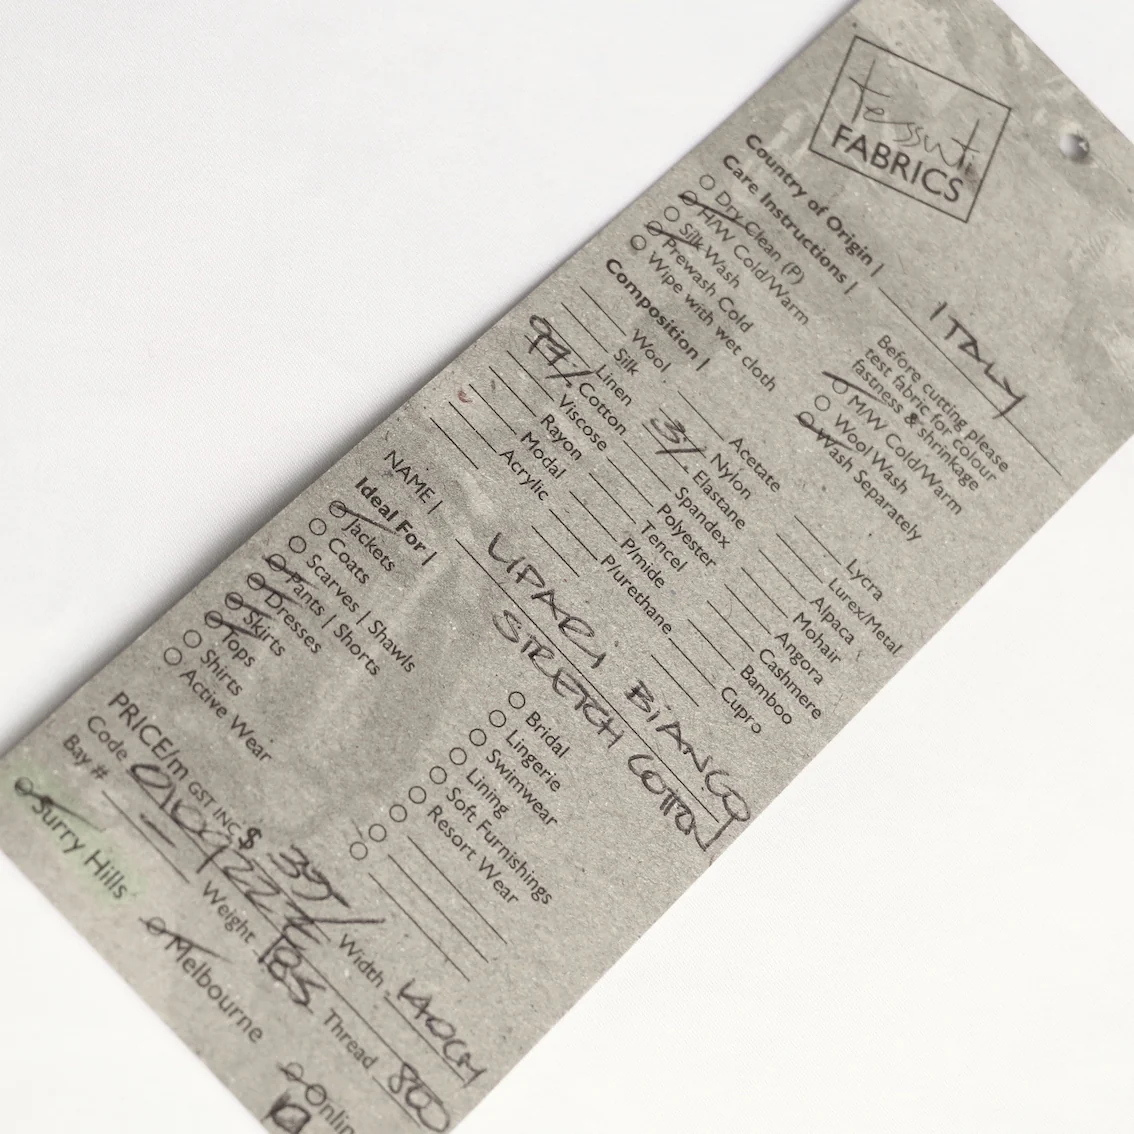 tessuti
FABRICS
Country of Origin | ITALY
Care Instructions |
Before cutting please
test fabric for colour
fastness & shrinkage
Dry Clean (P)
H/W Cold/Warm
Silk Wash
Prewash Cold
Wipe with wet cloth
M/W Cold/Warm
Wool Wash
Wash Separately
Composition |
Wool
Silk
Linen
97% Cotton
Viscose
Rayon
Modal
Acrylic
Acetate
Nylon
3% Elastane
Spandex
Polyester
Tencel
P/mide
P/urethane
Lycra
Lurex/Metal
Alpaca
Mohair
Angora
Cashmere
Bamboo
Cupro
NAME | LIPARI BIANCO
STRETCH COTTON
Ideal For |
Jackets
Coats
Scarves | Shawls
Pants | Shorts
Dresses
Skirts
Tops
Shirts
Active Wear
Bridal
Lingerie
Swimwear
Lining
Soft Furnishings
Resort Wear
PRICE/m GST INC $ Width 140CM
Code Weight 185 Thread
Bay #
Surry Hills
Melbourne